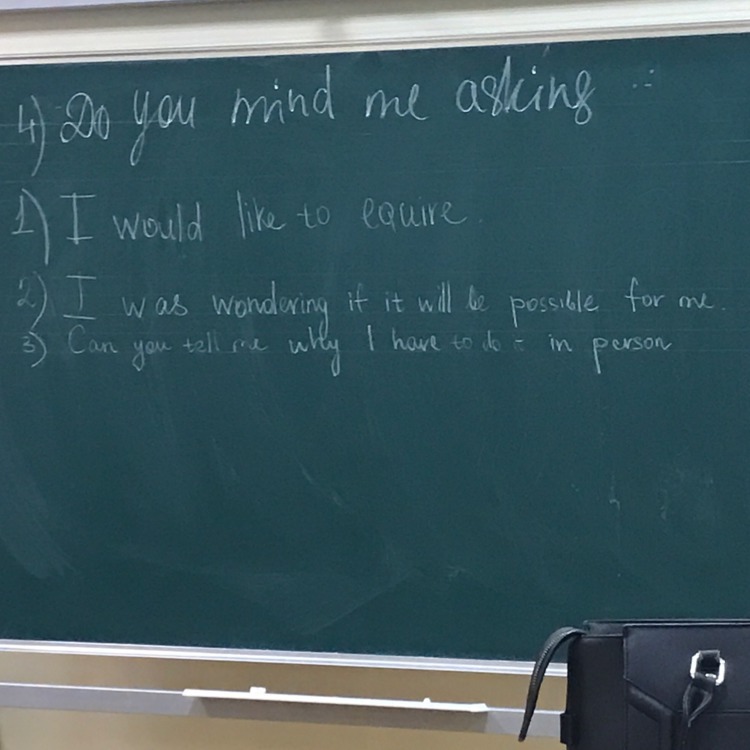 4) Do you mind me asking ...
1) I would like to equire.
2) I was wondering if it will be possible for me.
3) Can you tell me why I have to do in person